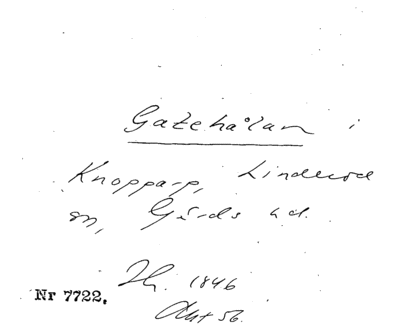 Gatehålan i
Knopparp, Linderöd
sn, Gärds hd.
1846
Nr 7722.
Akt 56.